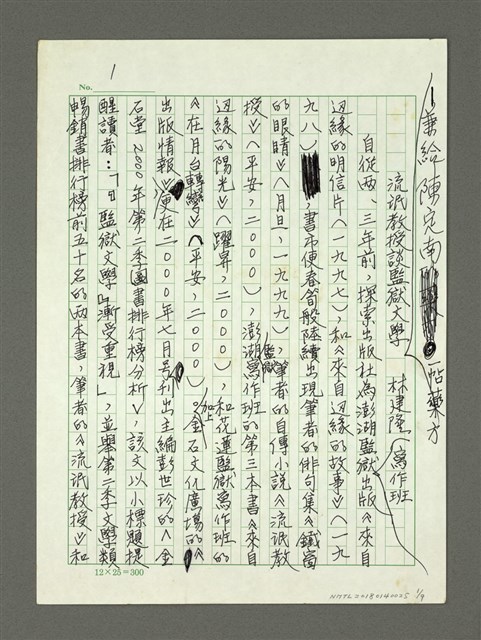 1
No.
—兼給陳定南一帖藥方
流氓教授談監獄文學
林建隆
寫作班
自從兩、三年前，探索出版社為澎湖監獄出版《來自
邊緣的明信片》（一九九七），和《來自邊緣的故事》（一九
九八），書市便春筍般陸續出現筆者的俳句集《鐵窗
的眼睛》（月旦，一九九九），筆者的自傳小說《流氓教
授》（平安，二〇〇〇），澎湖監獄寫作班的第三本書《來自
邊緣的陽光》（躍昇，二〇〇〇），和花蓮監獄寫作班的
《在月台轉彎》（平安，二〇〇〇）。加上金石文化廣場的《
出版情報》更在二〇〇〇年七月號刊出主編彭世珍的〈金
石堂2000年第二季圖書排行榜分析〉，該文以小標題提
醒讀者：「『監獄文學』漸受重視」，並舉第二季文學類
暢銷書排行榜前五十名的兩本書，筆者的《流氓教授》和
12×25=300
NMTL20180140025 1/9